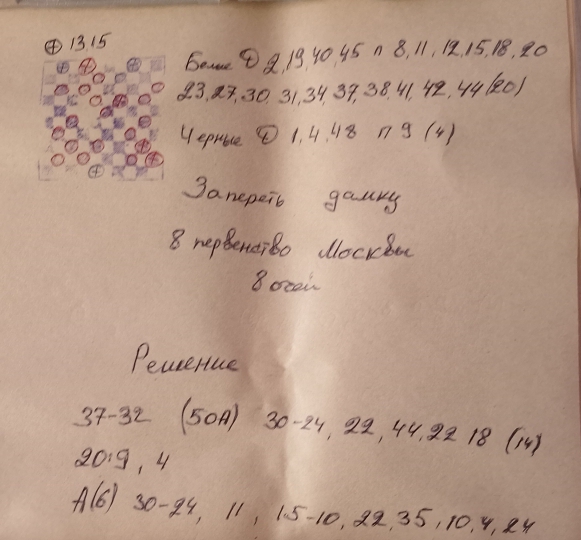 ⊕ 13,15
Белые Д 2,19,40,45 п 8,11,12,15,18,20
23,27,30, 31,34, 37, 38,41, 42, 44 (20)
Черные Д 1,4,48 п 9 (4)
Запереть дамку
8 первенство Москвы
8 очей
Решение
37-32 (50А) 30-24, 22, 44,22 18 (14)
20:9, 4
А(6) 30-24, 11, 15-10, 22, 35, 10, 4, 24